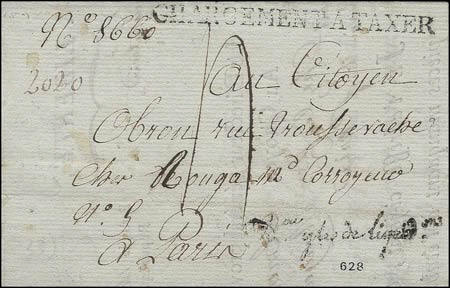 CHARGEMENT A TAXER
N.o 8660
2020
Au Citoyen
Obron rue Trousservache
Chez Rouga md Corroyeur
N.o 5
a Paris
de
628